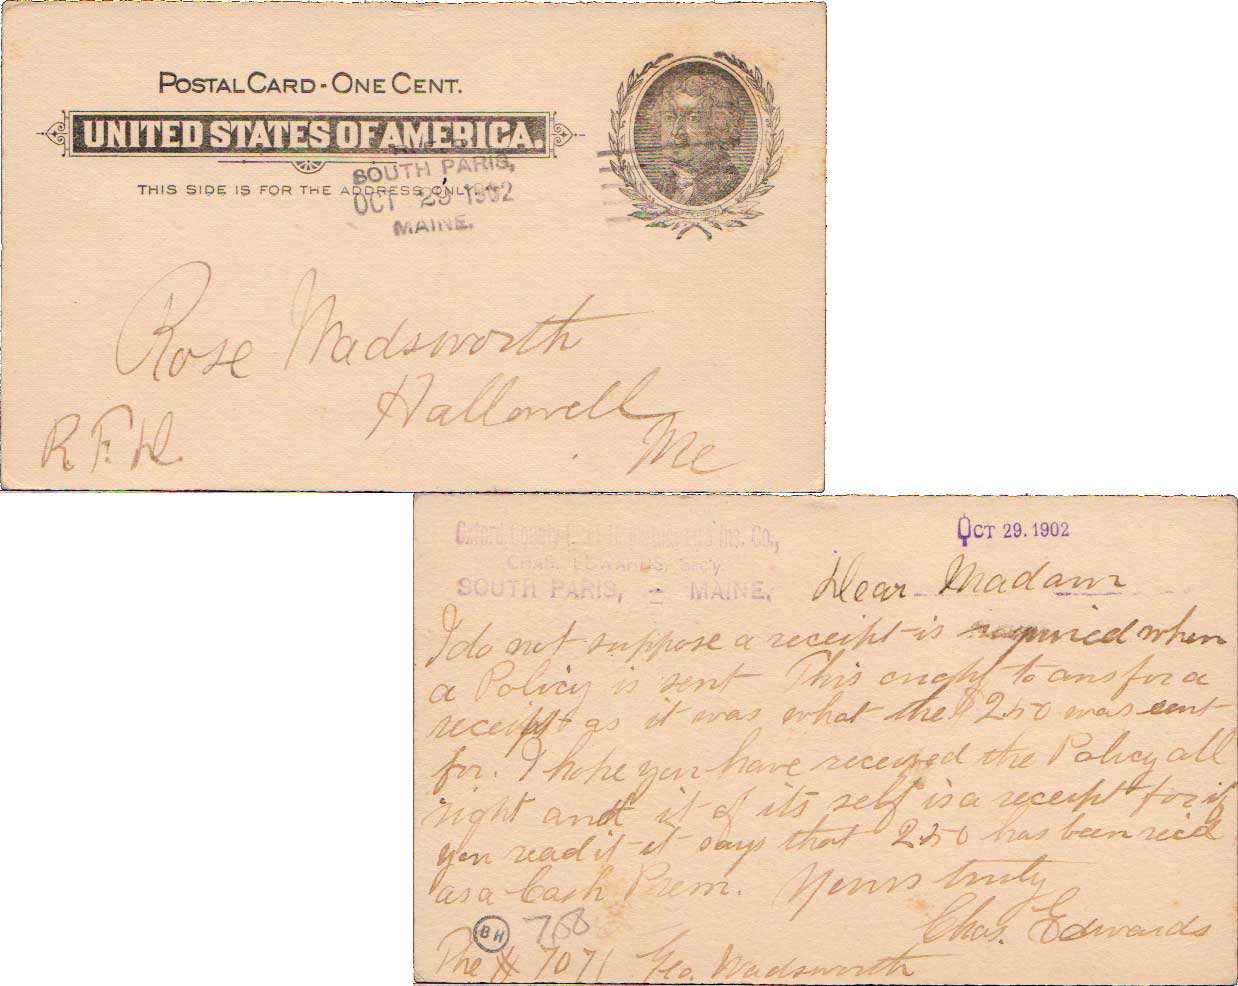 POSTAL CARD - ONE CENT.
UNITED STATES OF AMERICA.
THIS SIDE IS FOR THE ADDRESS ONLY
SOUTH PARIS,
OCT 29 1902
MAINE.
Rose Wadsworth
Hallowell
Me
R. F. D.
Oxford County Ins. Co.,
CHAS. EDWARDS, Sec'y
SOUTH PARIS, - MAINE.
OCT 29. 1902
Dear Madam
I do not suppose a receipt is required when
a Policy is sent This ought to ans for a
receipt as it was what the $250 was sent
for. I hope you have received the Policy all
right and it of its self is a receipt for if
you read it it says that 250 has been recd
as a Cash Prem. Yours truly
Chas. Edwards
BH 788
The # 7071 Geo. Wadsworth